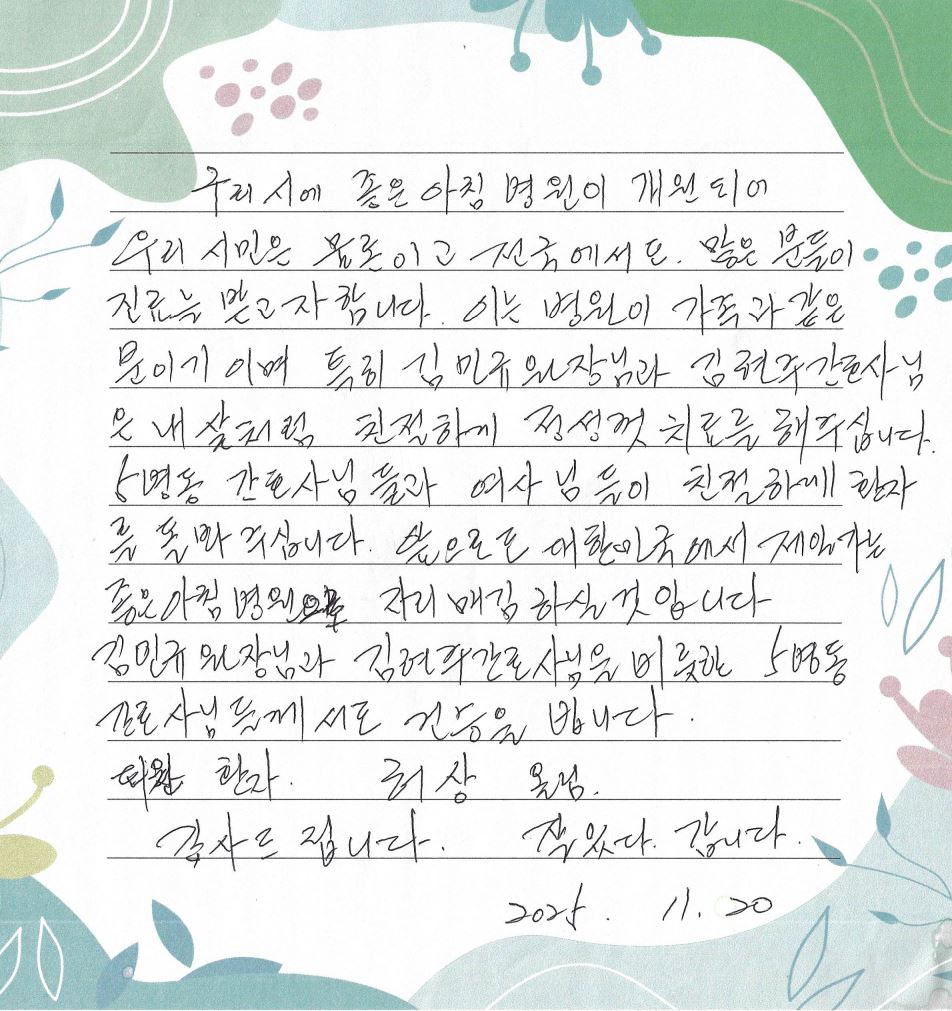 구리시에 좋은아침 병원이 개원되어
우리 시민은 물론이고 전국에서도. 많은 분들이
진료를 받고자 합니다. 이는 병원이 가족과 같은
분이기 이며 특히 김민규원장님과 김현주간호사님
은 내 살처럼 친절하게 정성껏 치료를 해주십니다.
5병동 간호사님들과 여사님들이 친절하게 환자
를 돌봐 주십니다. 앞으로도 대한민국에서 제일가는
좋은아침병원으로 자리매김 하실것 입니다
김민규원장님과 김현주간호사님을 비롯한 5병동
간호사님들께서도 건승을 빕니다.
퇴원 환자. 허상 올림.
감사드립니다. 잘있다. 갑니다.
2025. 11. 20